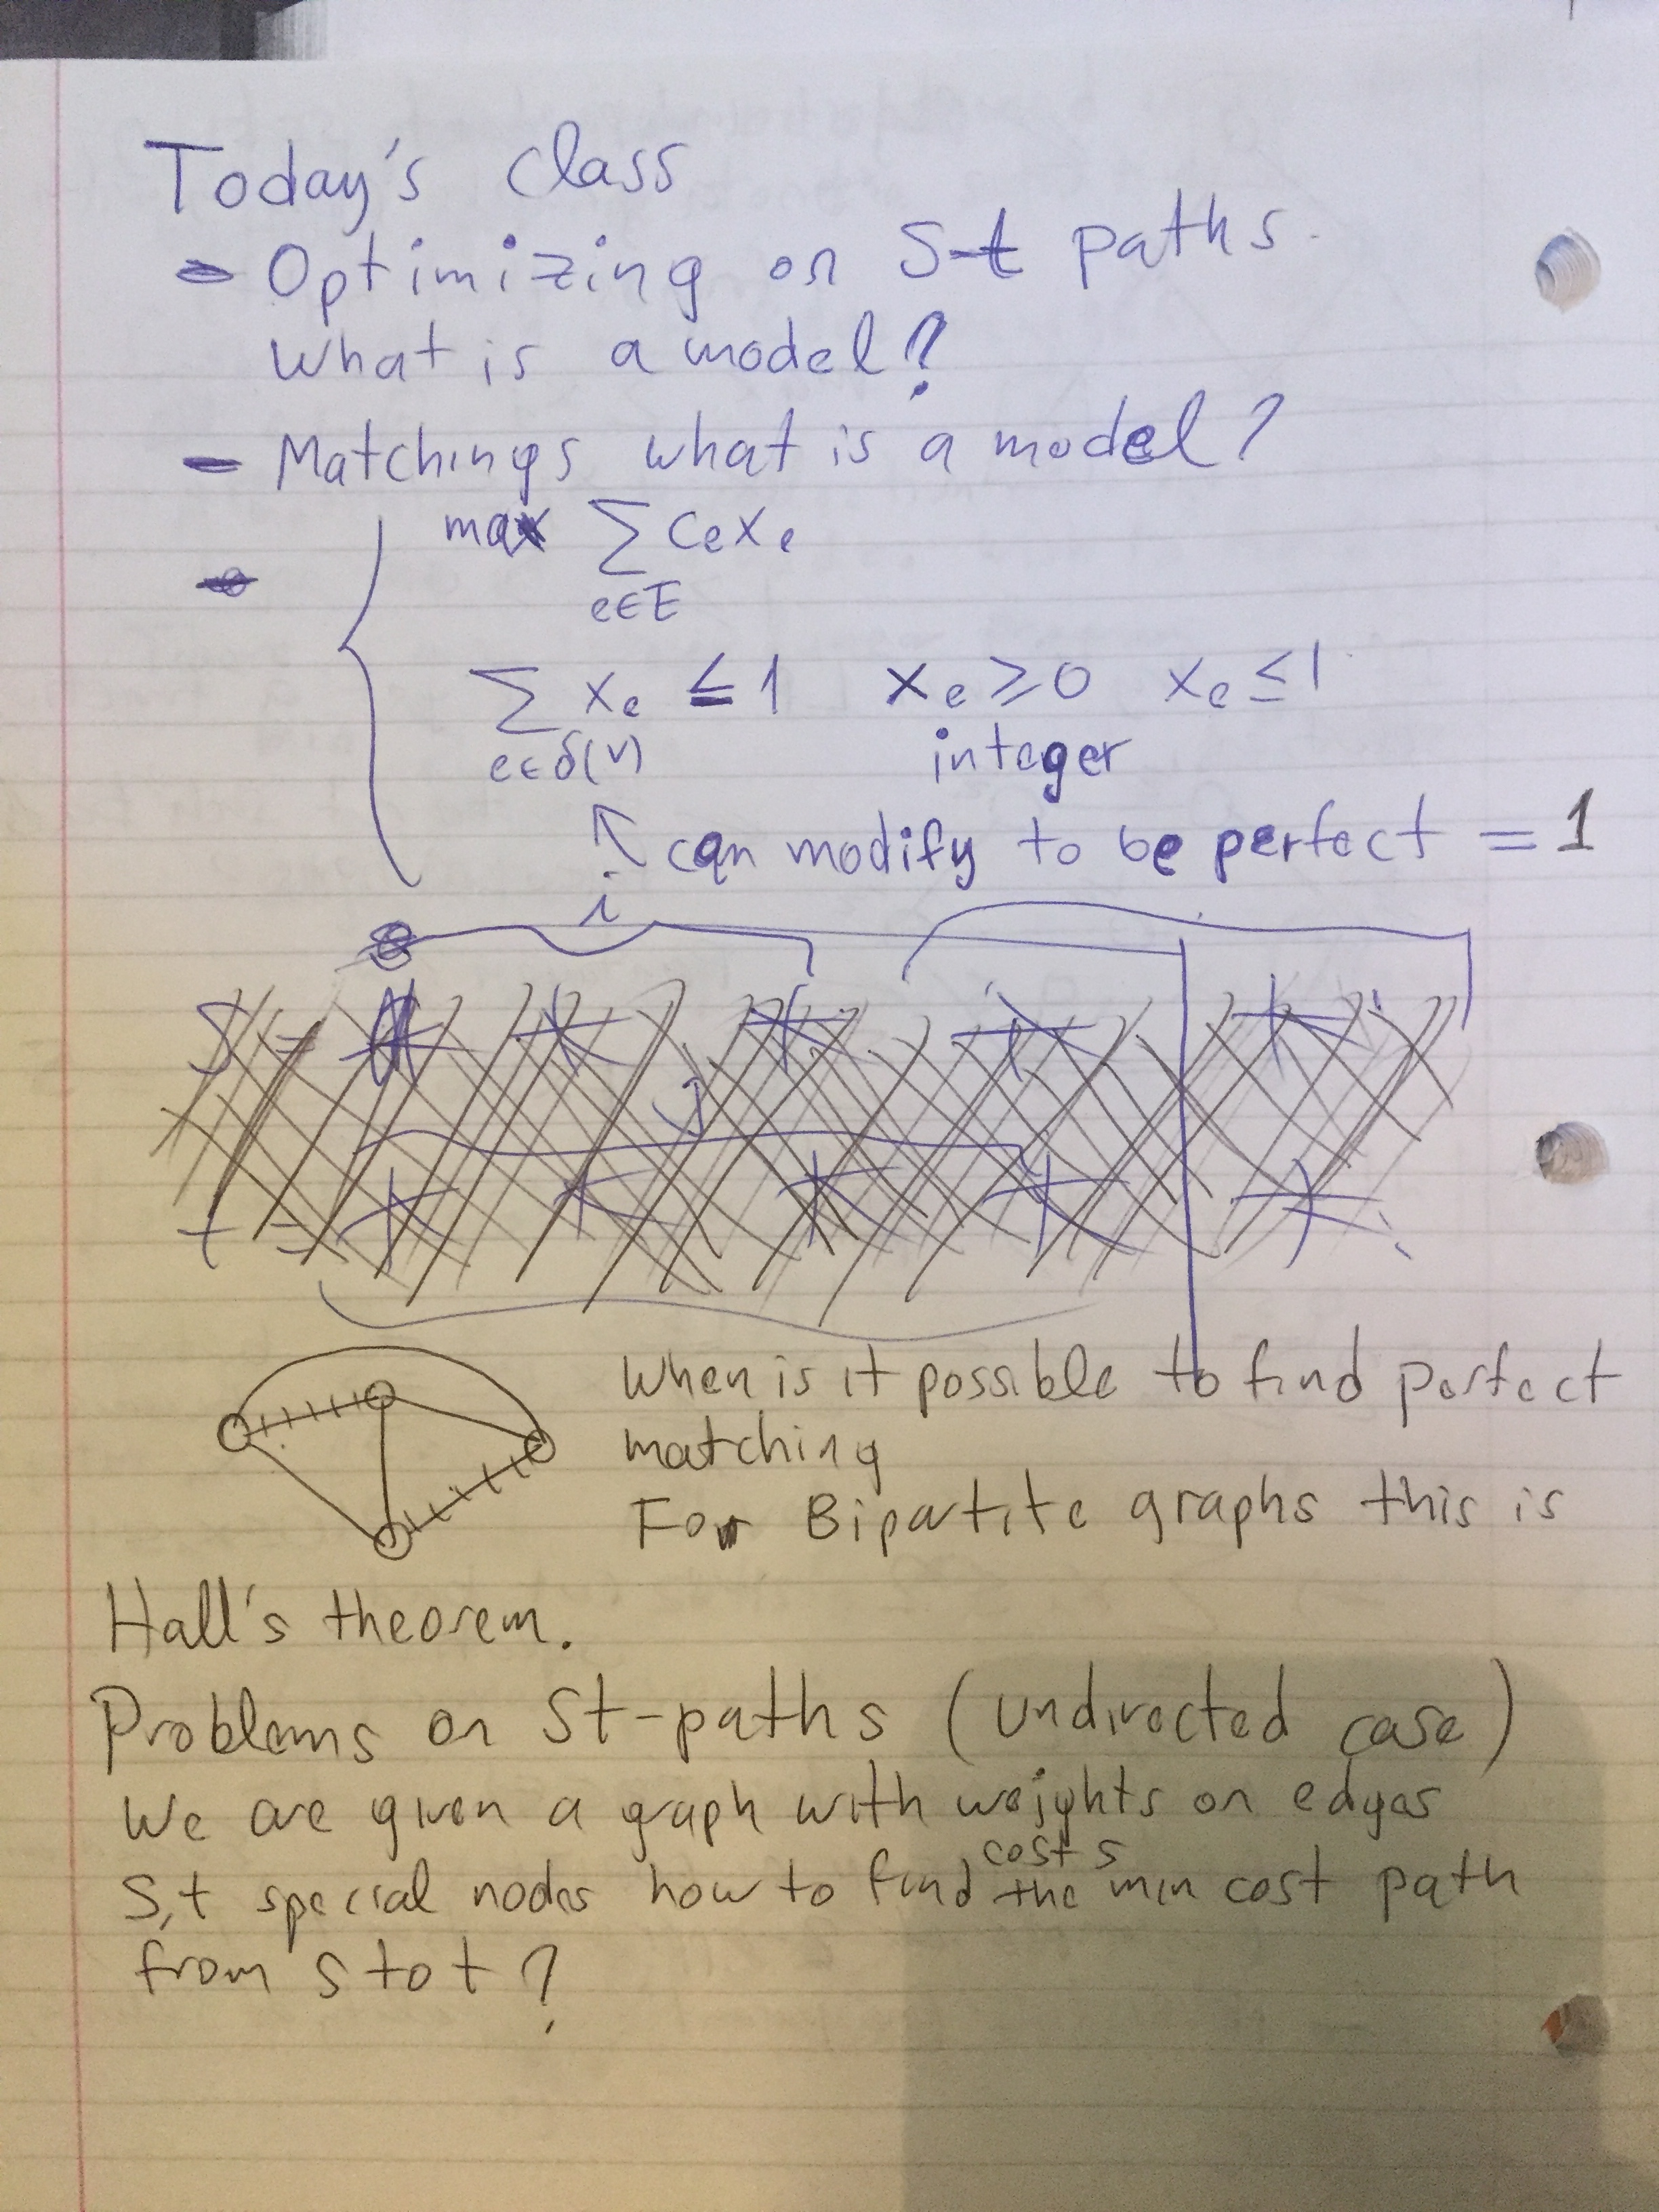 Today's class
- Optimizing on s-t paths.
What is a model?
- Matchings what is a model?
max ∑ CeXe
e∈E
∑ Xe ≤ 1   Xe ≥ 0   Xe ≤ 1
e∈δ(v)   integer
↖ can modify to be perfect = 1
i
S =
j
t =
When is it possible to find perfect
matching
For Bipartite graphs this is
Hall's theorem.
Problems on St-paths (undirected case)
We are given a graph with weights on edges
costs
S,t special nodes how to find the min cost path
from s to t?